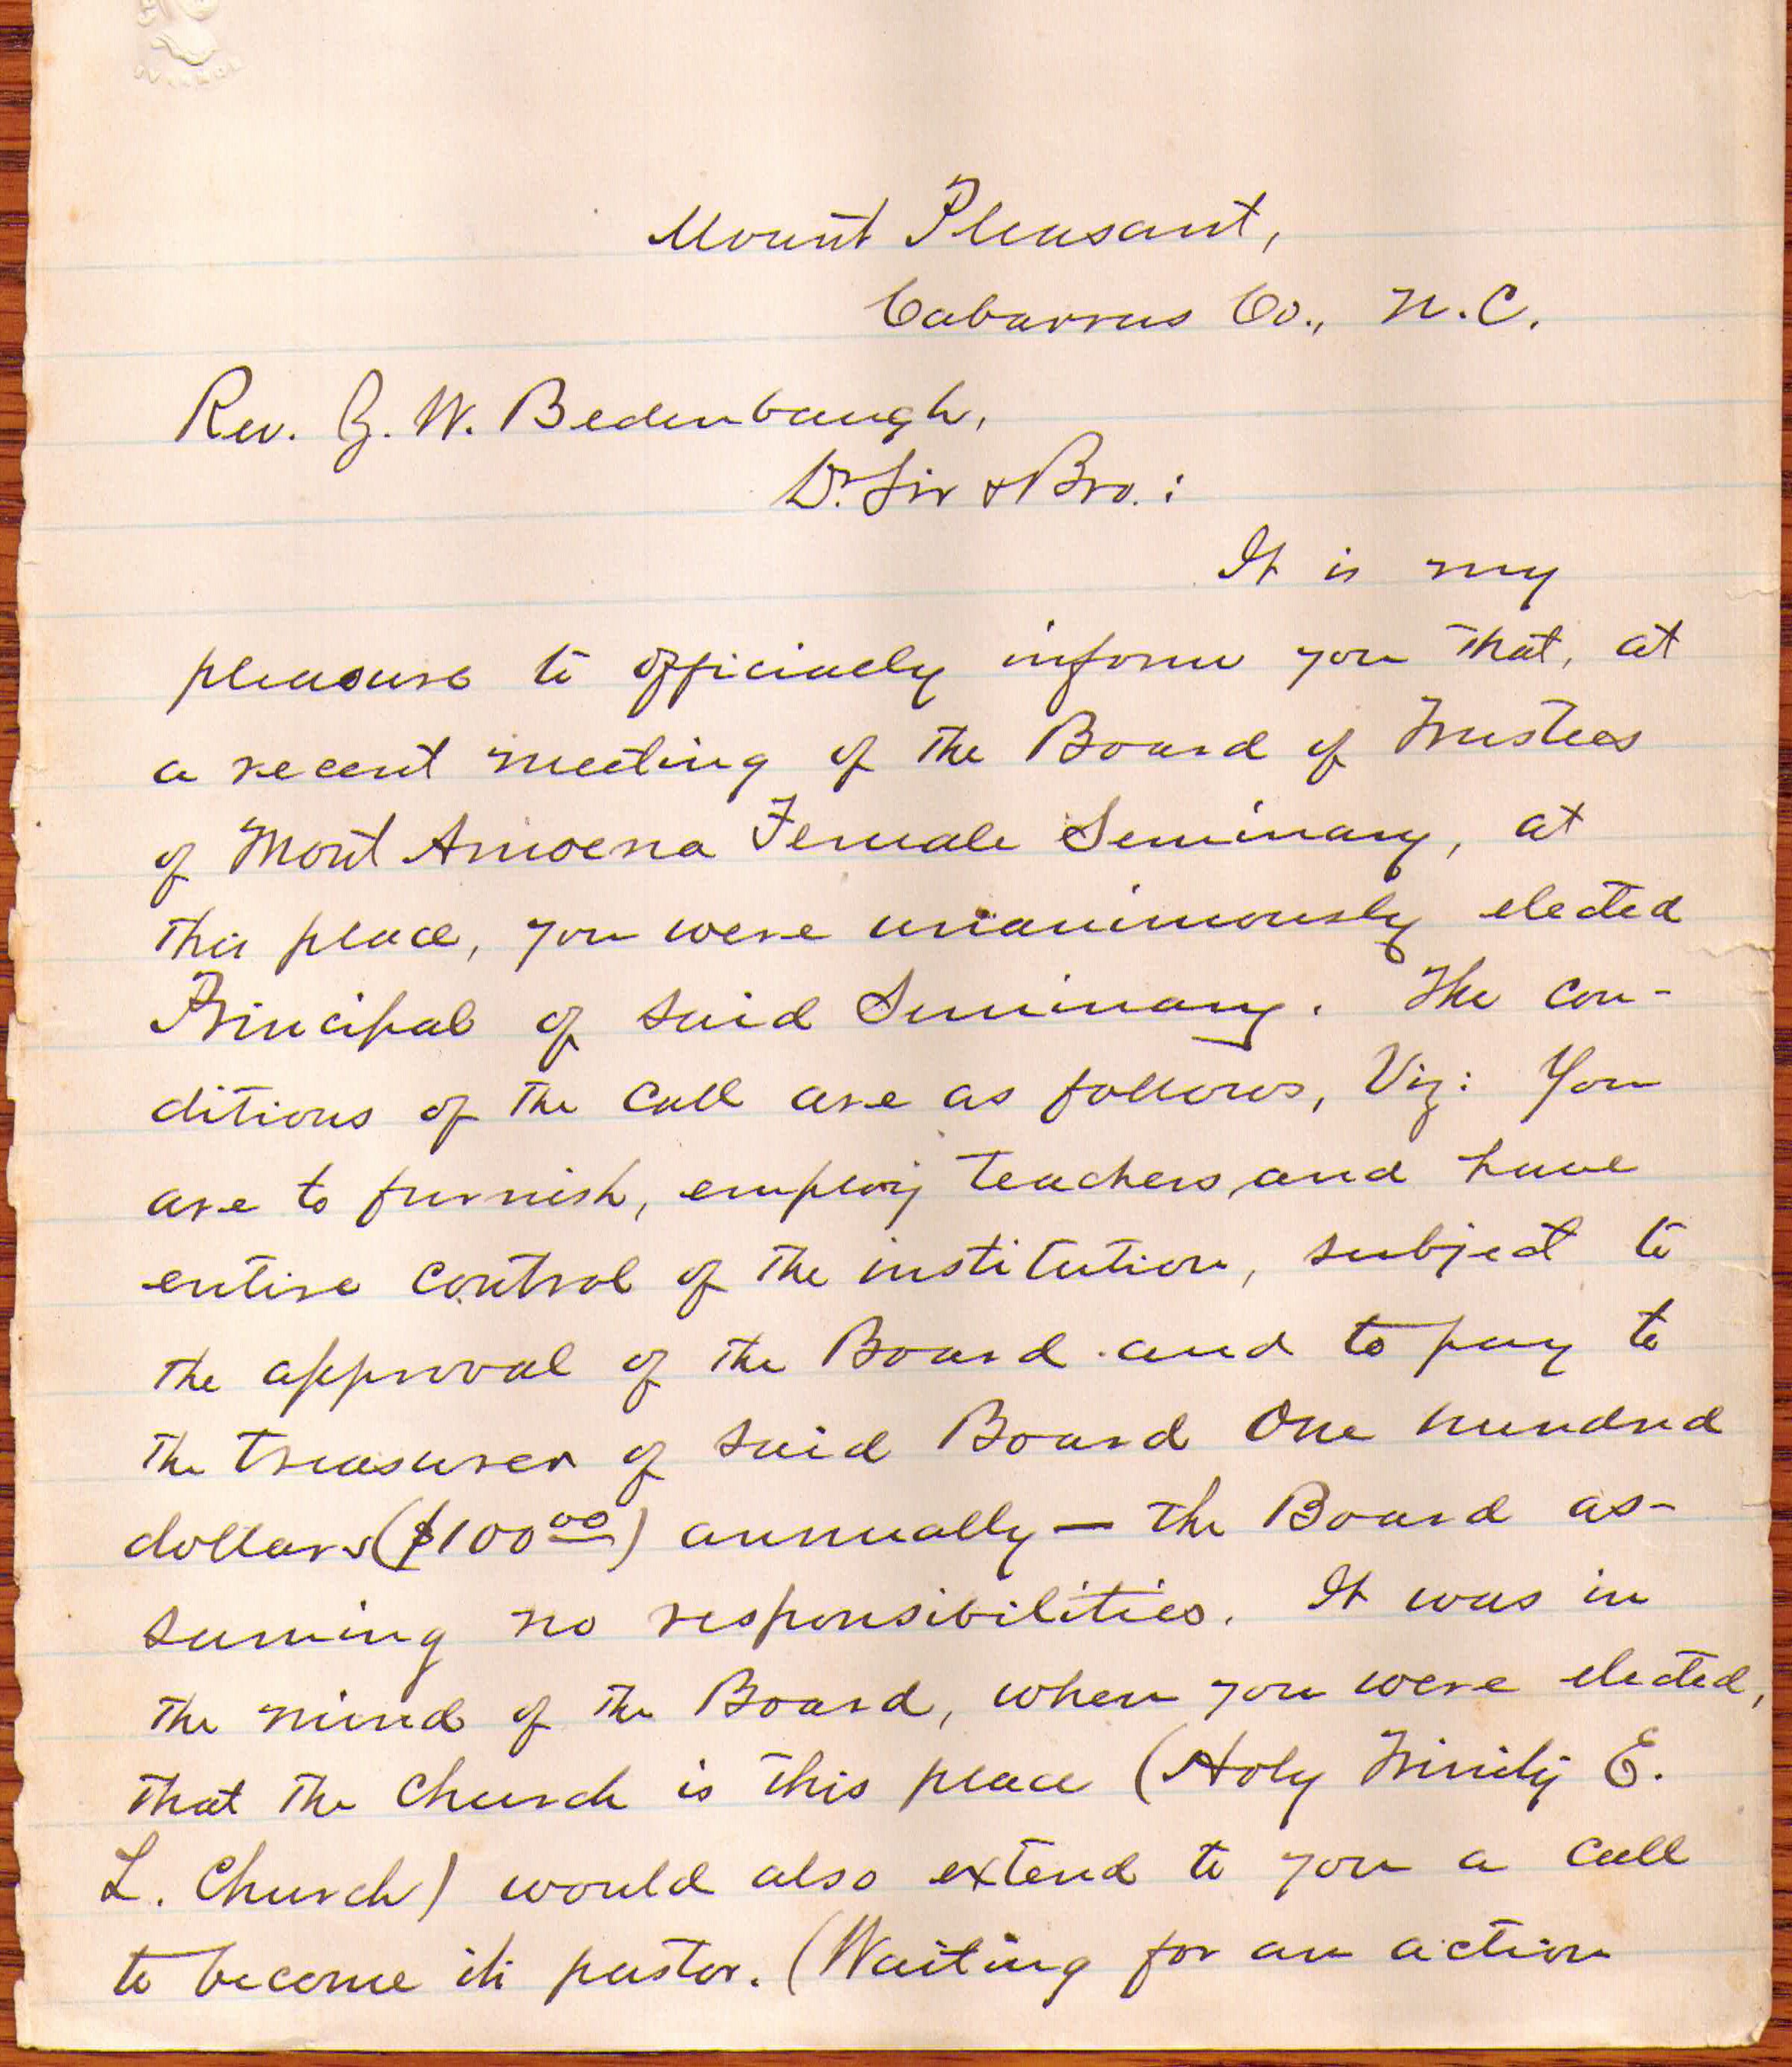 Mount Pleasant,
Cabarrus Co., N.C.
Rev. Z. W. Bedenbaugh,
Dr. Sir & Bro.:
It is my
pleasure to officially inform you that, at
a recent meeting of the Board of Trustees
of Mont Amoena Female Seminary, at
this place, you were unanimously elected
Principal of said Seminary. The con-
ditions of the call are as follows, Viz: You
are to furnish, employ teachers, and have
entire control of the institution, subject to
the approval of the Board and to pay to
the treasurer of said Board One hundred
dollars ($100.00) annually — the Board as-
suming no responsibilities. It was in
the mind of the Board, when you were elected,
that the church is this place (Holy Trinity E.
L. Church) would also extend to you a call
to become its pastor. (Waiting for an action